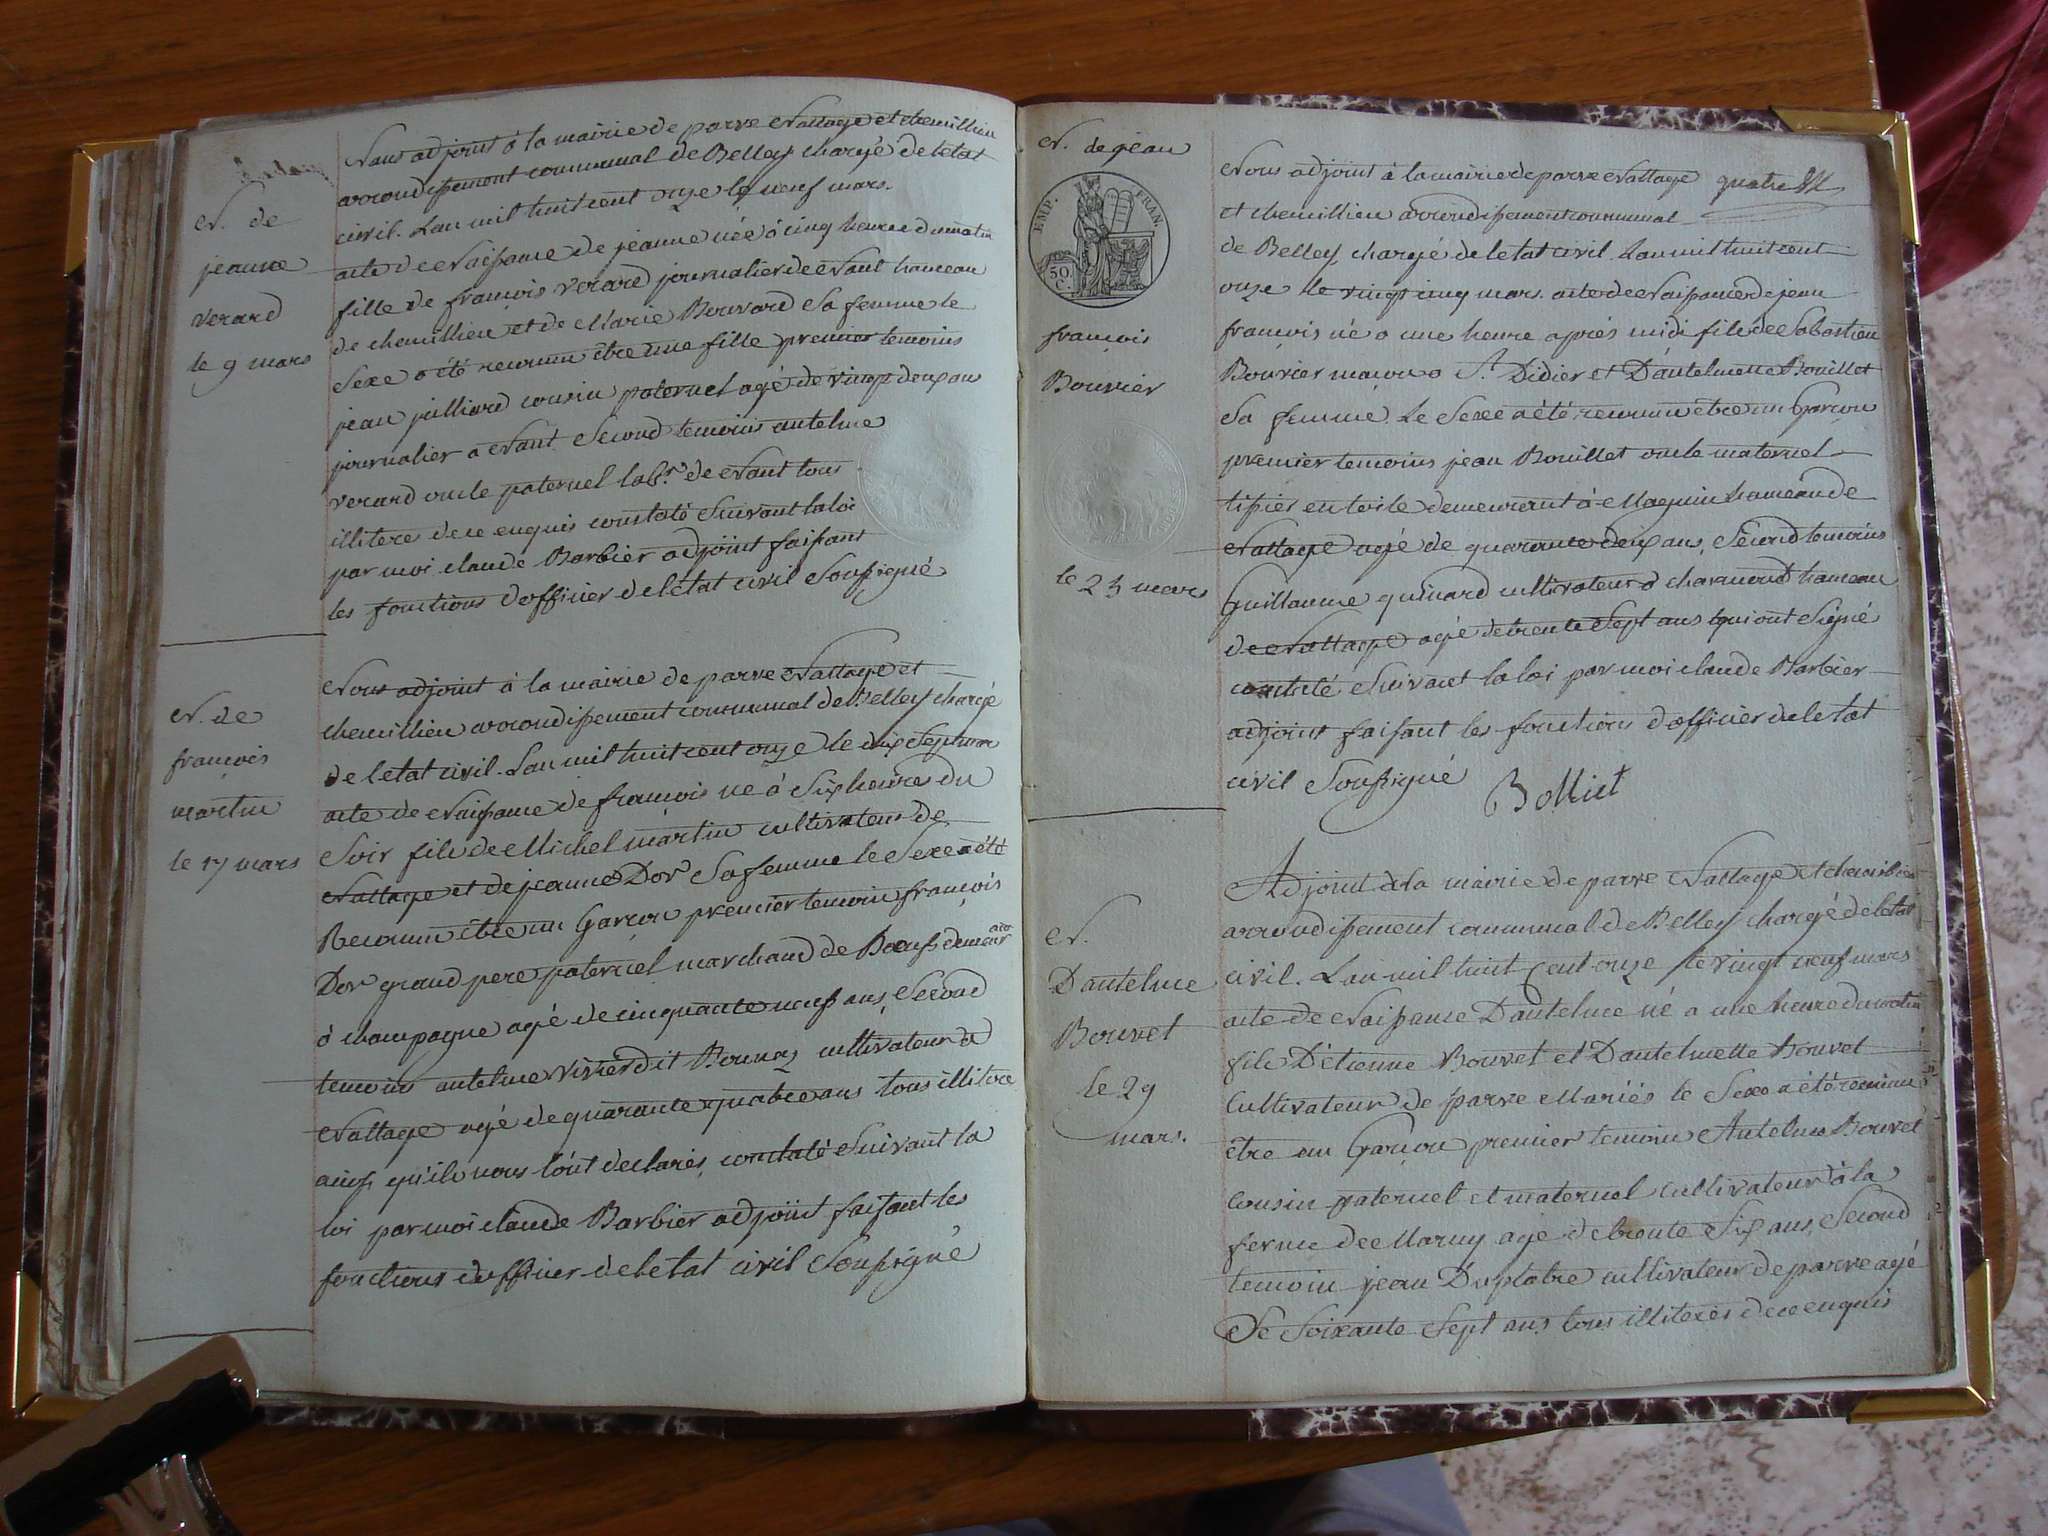 N. de
jeanne
verard
le 9 mars
Nous adjoint à la mairie de parve Nattage et chemillieu
arrondissement communal de Belley chargé de letat
civil. Lan mil huit cent onze le neuf mars.
acte de Naissance de jeanne née à cinq heures du matin
fille de francois verard journalier de Nant hameau
de chemillieu et de Marie Bouvard Sa femme le
Sexe a été reconnu être une fille premier temoins
jean julliard cousin paternel agé de vingt deux an
journalier a Nant Second temoins antelme
verard oncle paternel lab.r de Nant tous
illitere de ce enquis constaté Suivant la loi
par moi claude Barbier adjoint faisant
les fonctions dofficier de létat civil Soussigné
N. de
francois
martin
le 17 mars
Nous adjoint à la mairie de parve Nattage et
chemillieu arrondissement communal de Belley chargé
de letat civil. Lan mil huit cent onze le dix Sept mars
acte de Naissance de francois né à Six heures du
Soir fils de Michel martin cultivateur de
Nattage et de jeanne Dor Sa femme le Sexe a été
Reconnu être un Garcon premier temoin francois
Dor grand pere paternel marchand de Bœufs demeur ant
à champagne agé de cinquante neuf ans, Second
temoins antelme vivier dit cultivateur a
Nattage agé de quarante quatre ans tous illitere
ainsi qu'ils nous lont declarés, constaté Suivant la
loi par moi claude Barbier adjoint faisant les
fonctions dofficier de letat civil Soussigné
N. de jean
EMP. FRAN.
50.
C.
francois
Bouvier
le 25 mars
Nous adjoint à la mairie de parve Nattage quatre
et chemillieu arrondissement communal
de Belley chargé de letat civil. Lan mil huit cent
onze le vingt cinq mars. acte de Naissance de jean
francois né a une heure après midi fils de Sabastien
Bouvier macon a St. Didier et Dantelmette Bouillet
Sa femme. Le Sexe a été reconnu être un Garcon
premier temoins jean Bouillet oncle maternel
tissier en toile demeurant à Magnin hameau de
Nattage agé de quarante deux ans, Sécond temoins
Guillaume quinard cultivateur a charmond hameau
de Nattage agé de trente Sept ans qui ont Signé
constaté Suivant la loi par moi claude Barbier
adjoint faisant les fonctions dofficier de letat
civil Soussigné Bolliet
N.
Dantelme
Bouvet
le 29
mars.
Adjoint à la mairie de parve Nattage et chemillieu
arrondissement communal de Belley chargé de letat
civil. Lan mil huit Cent onze le vingt neuf mars
acte de Naissance Dantelme né a une heure du matin
fils Détienne Bouvet et Dantelmette Bouvet
Cultivateur de parve Mariés le Sexe a été reconnu
être un Garcon premier temoin Antelme Bouvet
Cousin paternel et maternel Cultivateur à la
ferme de agé de trente Six ans, Second
temoin jean Duplatre cultivateur de parve agé
De Soixante Sept ans tous illiterés de ce enquis